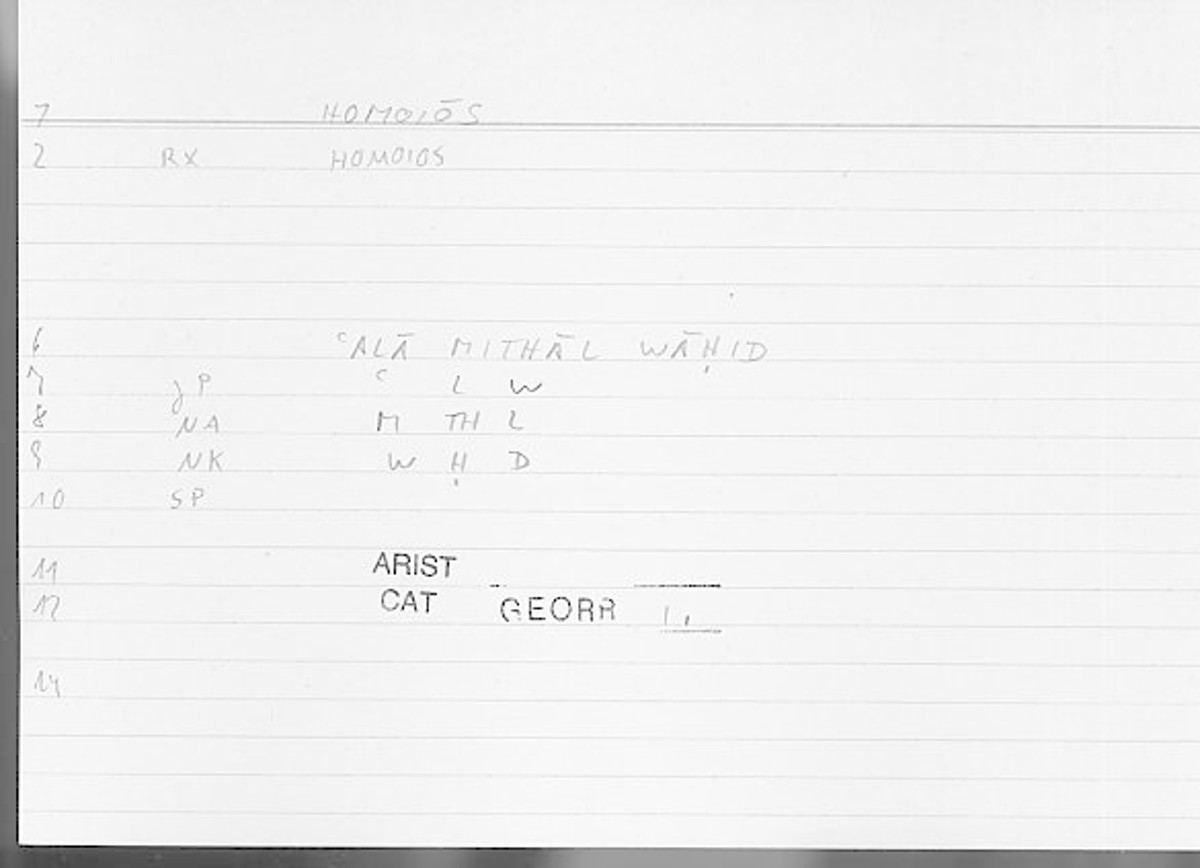 1 HOMOIŌS
2 RX HOMOIOS
6 ʿALĀ MITHĀL WĀḤID
7 JP ʿ L W
8 NA M TH L
9 NK W Ḥ D
10 SP
11 ARIST
12 CAT GEORR
14